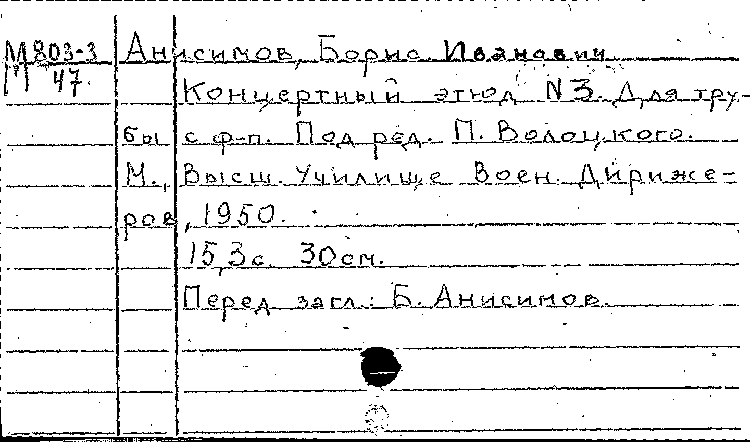 М803-3 Анисимов, Борис Иванович
М 47. Концертный этюд №3. Для тру-
бы с ф-п. Под ред. П. Волоцкого.
М., Высш. Училище Воен. Дириже-
ров, 1950.
15,3с. 30см.
Перед загл.: Б. Анисимов.